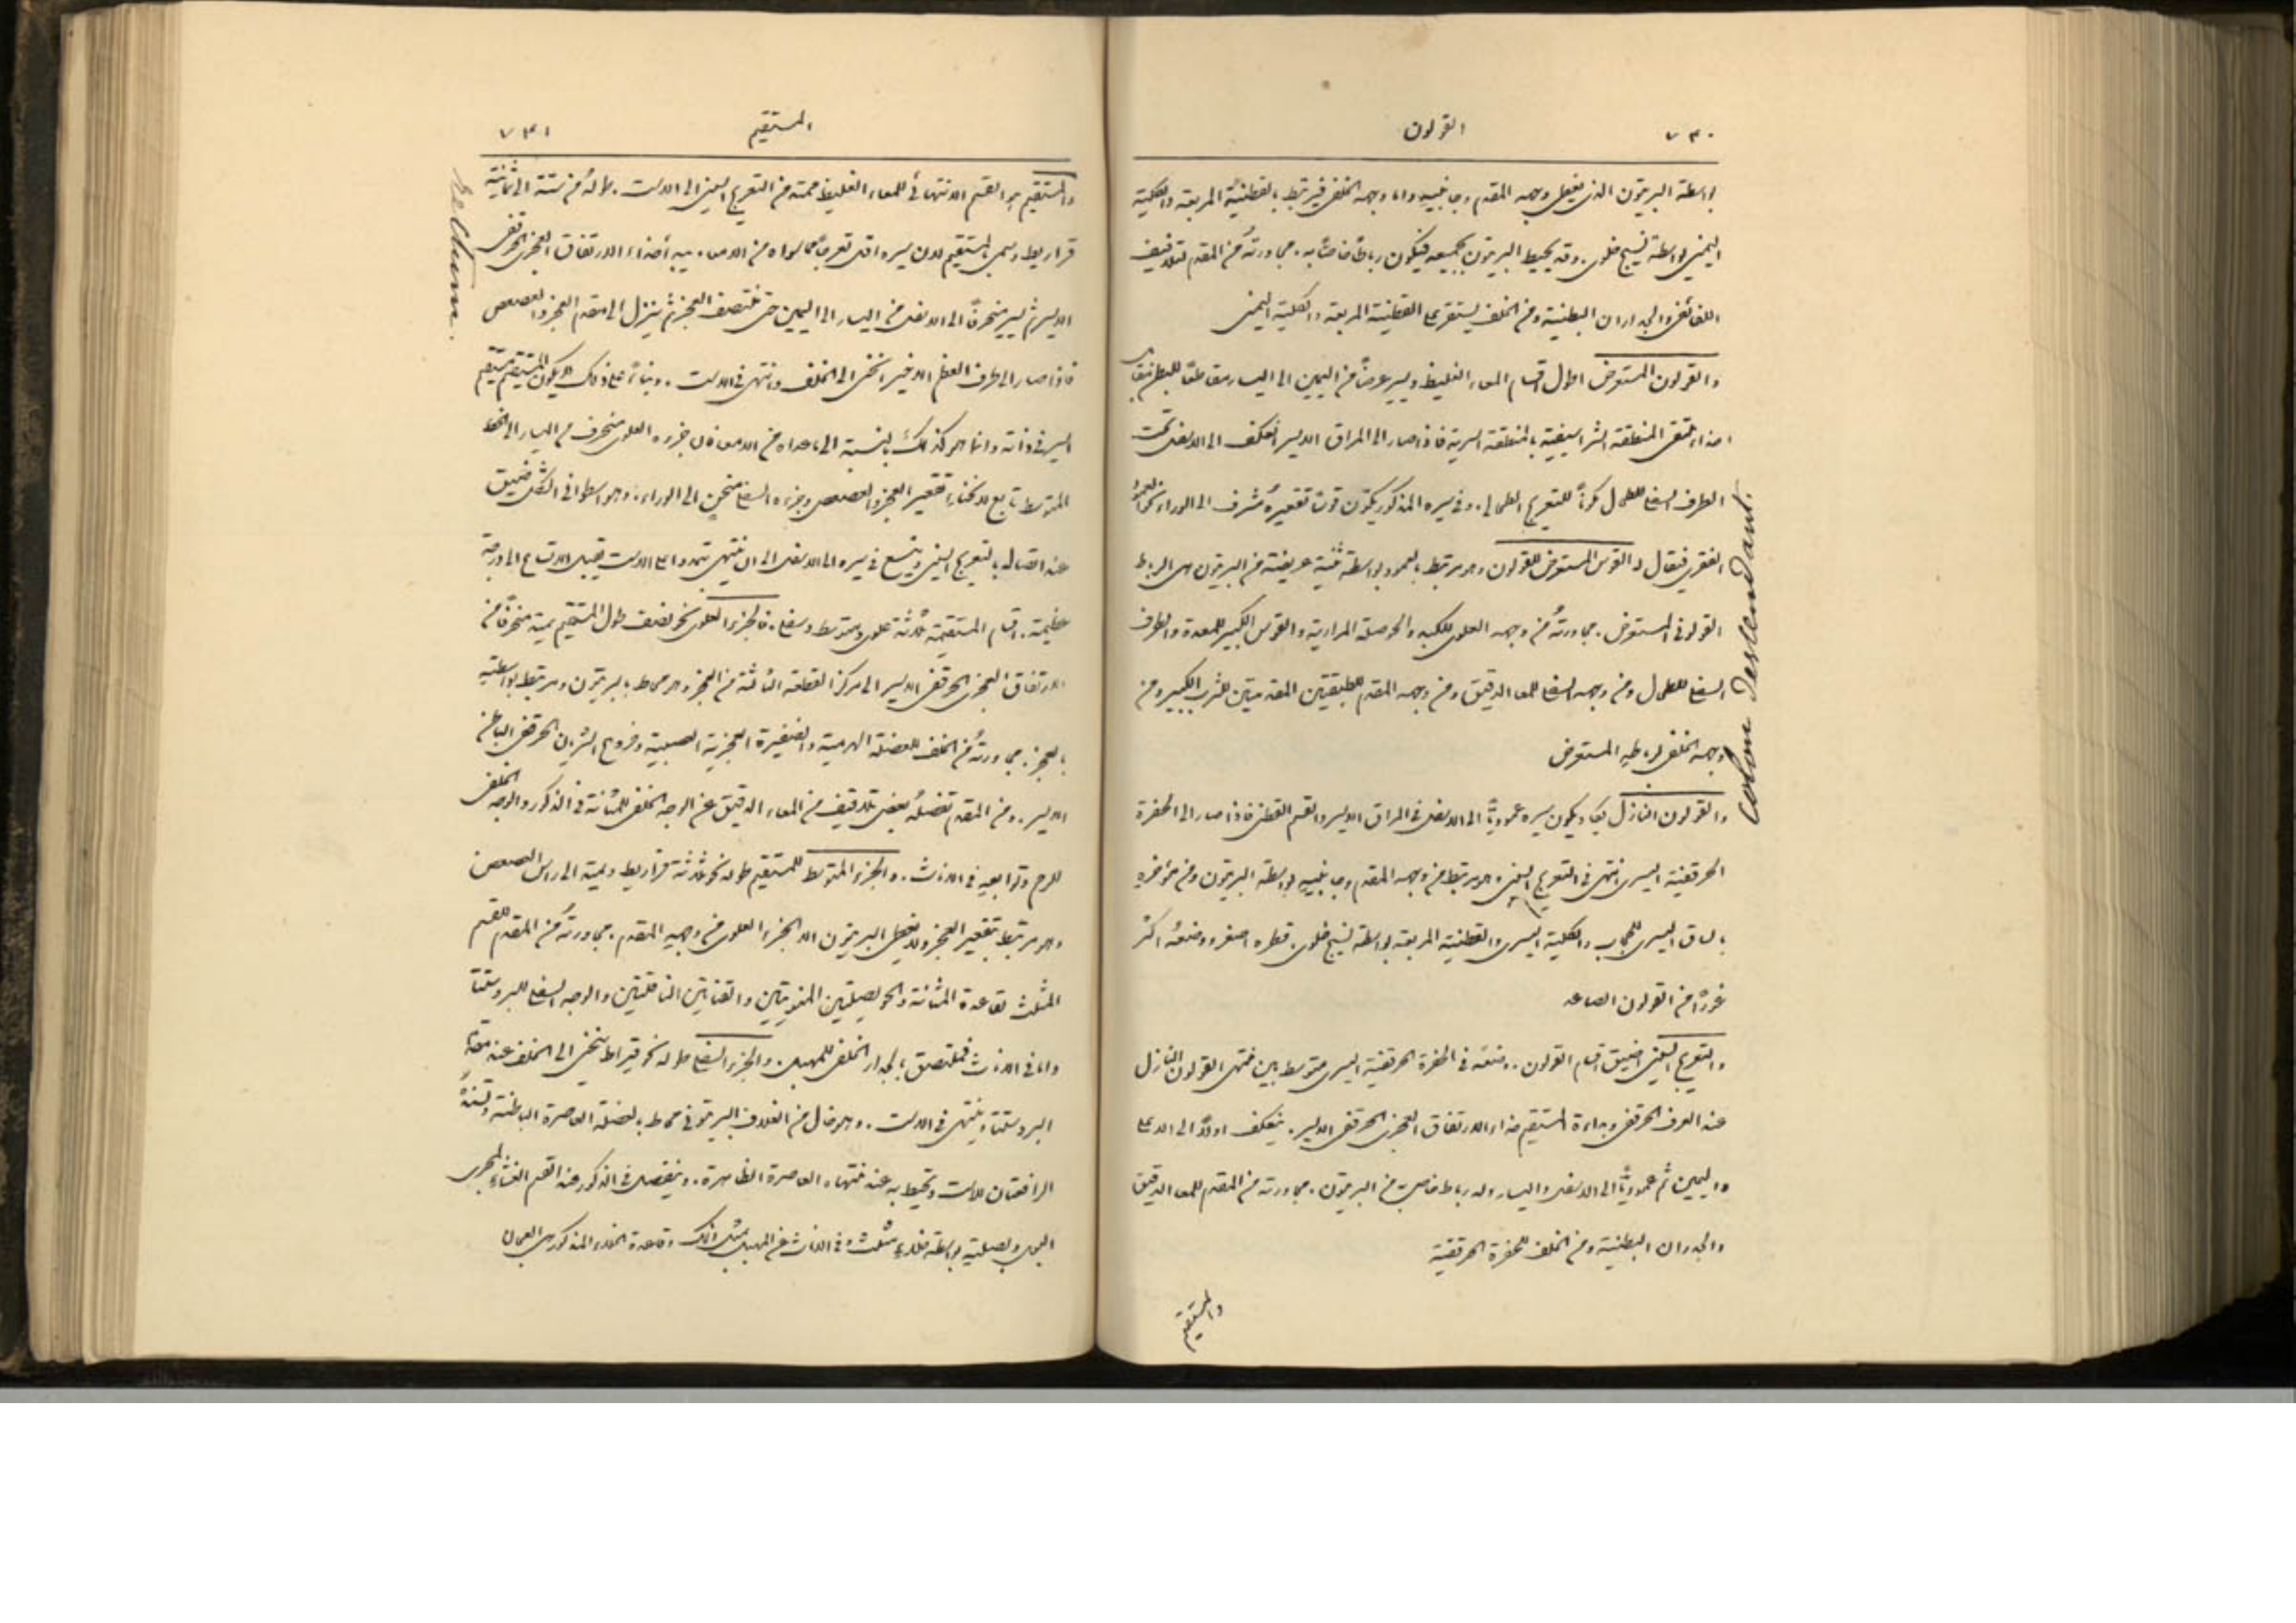 ٧٣٠ القولون
بواسطة البريتون الذي يغطي وجهه المقدم وجانبيه واما وجهه الخلفي فيرتبط بالقطنية المربعة والكلية
اليمنى بواسطة نسيج خلوي. وقد يحيط البريتون بجميعه فيكون رباطاً خاصاً به. مجاورته من المقدم لتلافيف
اللفائفي والجدران البطنية ومن الخلف يستقر على القطنية المربعة والكلية اليمنى
والقولون المستعرض اطول اقسام المعاء الغليظ ويسير عرضاً من اليمين الى اليسار مقاطعاً للبطن
حذاء ملتقى المنطقة الشراسيفية بالمنطقة السرية فاذا صار الى المراق الايسر انعكف الى الاسفل تحت
الطرف السفلي للطحال مكوناً للتعريج الطحالي. وفي سيره المذكور يكون قوساً تقعيره مشرف الى الوراء نحو العمود
الفقري فيقال له القوس المستعرض للقولون وهو مرتبط بالعمود بواسطة ثنية عريضة من البريتون هي الرباط
القولوني المستعرض. مجاورته من وجهه العلوي للكبد والحوصلة المرارية والقوس الكبير للمعدة والطرف
السفلي للطحال ومن وجهه السفلي للمعا الدقيق ومن وجهه المقدم للطبقتين المقدمتين للثرب الكبير ومن
وجهه الخلفي لرباطه المستعرض
والقولون النازل يكاد يكون سيره عمودياً الى الاسفل في المراق الايسر والقسم القطني فاذا صار الى الحفرة
الحرقفية اليسرى انتهى في التعريج السيني وهو مرتبط من وجهه المقدم وجانبيه بواسطة البريتون ومن مؤخره
بالساق اليسرى للحجاب والكلية اليسرى والقطنية المربعة بواسطة نسيج خلوي. قطره اصغر ووضعه اكثر
غوراً من القولون الصاعد
والتعريج السيني اضيق اقسام القولون. وضعه في الحفرة الحرقفية اليسرى متوسط بين منتهى القولون النازل
عند العرف الحرقفي وبداءة المستقيم حذاء الارتفاق العجزي الحرقفي الايسر. ينعكف اولاً الى الاعلى
واليمين ثم عمودياً الى الاسفل واليسار وله رباط خاص من البريتون. مجاورته من المقدم للمعا الدقيق
والجدران البطنية ومن الخلف للحفرة الحرقفية
والمستقيم
colon descendant.
المستقيم ٧٣١
والمستقيم هو القسم الانتهائي للمعاء الغليظ ممتد من التعريج السيني الى الاست. طوله من ستة الى ثمانية
قراريط وسمي بالمستقيم لان سيره اقل تعرجاً مما سواه من الامعاء. يبدأ حذاء الارتفاق العجزي الحرقفي
الايسر ثم يسير منحرفاً الى الاسفل من اليسار الى اليمين حتى منتصف العجز ثم ينزل الى مقدم العجز والعصعص
فاذا صار الى طرف العظم الاخير انحنى الى الخلف وانتهى في الاست. وبناءً على ذلك لا يكون المستقيم مستقيم
السير في ذاته وانما هو كذلك بالنسبة الى ما عداه من الامعاء فان جزءه العلوي منحرف من اليسار الى الخط
المتوسط تابع لانحناء تقعير العجز والعصعص وجزءه السفلي منحنٍ الى الوراء. وهو اسطواني الشكل ضيق
عند اتصاله بالتعريج السيني ويتسع في سيره الى الاسفل الى ان ينتهي بتمدد اعلا الاست قبيل الاتساع الى درجة
عظيمة. اقسام المستقيم ثلاثة علوي ومتوسط وسفلي. فالجزء العلوي نحو نصف طول المستقيم يمتد منحرفاً من
الارتفاق العجزي الحرقفي الايسر الى مركز القطعة الثالثة من العجز وهو محاط بالبريتون ومرتبط بواسطته
بالعجز. مجاورته من الخلف للعضلة الهرمية والضفيرة العجزية العصبية وفروع الشريان الحرقفي الباطن
الايسر. ومن المقدم تفصله بعض تلافيف من المعاء الدقيق عن الوجه الخلفي للمثانة في الذكور والوجه الخلفي
للرحم وتوابعه في الاناث. والجزء المتوسط للمستقيم طوله نحو ثلاثة قراريط ويمتد الى راس العصعص
وهو مرتبط بتقعير العجز ولا يغطي البريتون الا الجزء العلوي من وجهه المقدم. مجاورته من المقدم للقسم
المثلث لقاعدة المثانة والحويصلتين المنويتين والقناتين الناقلتين والوجه السفلي للبروستتا
واما في الاناث فملتصق بالجدار الخلفي للمهبل. والجزء السفلي طوله نحو قيراط ينحني الى الخلف عند مقدم
البروستتا وينتهي في الاست. وهو خال من الغلاف البريتوني محاط بالعضلة العاصرة الباطنة وتسنده
الرافعتان للاست وتحيط به عند منتهاه العاصرة الظاهرة. وينفصل في الذكور عند القسم الغشائي لمجرى
البول وبصلته بواسطة خلاء مثلث وفي الاناث عن المهبل بمثل ذلك وقاعدة الخلاء المذكور هي العجان
Rectum.